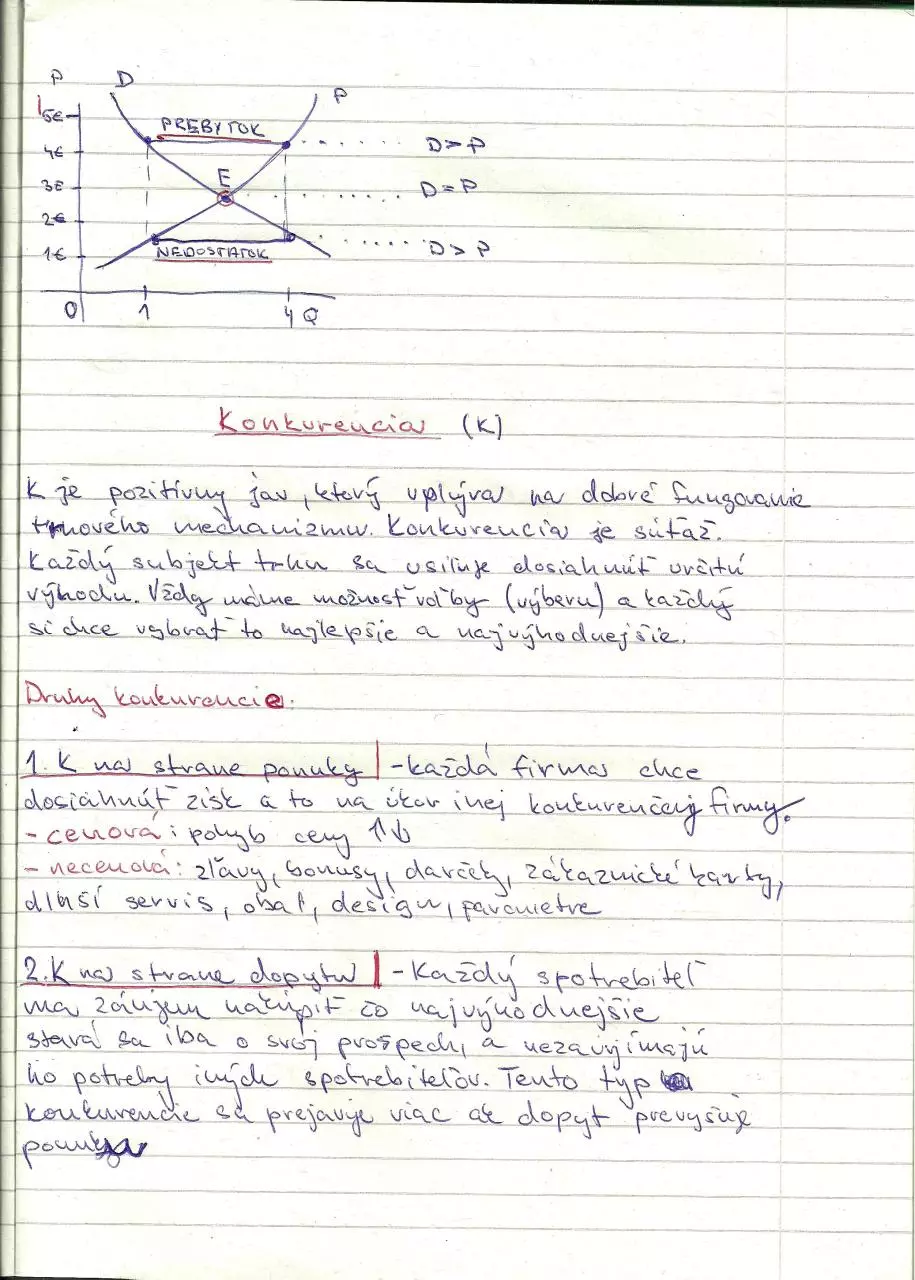 P D P
5€
PREBYTOK
4€ D>P
E
3€ D=P
2€
1€ NEDOSTATOK D>P
0 1 4 Q
Konkurencia (K)
K je pozitívny jav, ktorý vplýva na dobré fungovanie
trhového mechanizmu. Konkurencia je súťaž.
Každý subjekt trhu sa usiluje dosiahnúť určitú
výhodu. Vždy máme možnosť voľby (výberu) a každý
si chce vybrať to najlepšie a najvýhodnejšie.
Druhy konkurencie.
1. K na strane ponuky - každá firma chce
dosiahnúť zisk a to na úkor inej konkurenčnej firmy.
- cenová: pohyb ceny ↑↓
- necenová: zľavy, bonusy, darčeky, zákaznické karty,
dlhší servis, obal, design, parametre
2. K na strane dopytu - Každý spotrebiteľ
ma záujem nakúpiť čo najvýhodnejšie
stará sa iba o svoj prospech, a nezaujímajú
ho potreby iných spotrebiteľov. Tento typ
konkurencie sa prejavuje viac ak dopyt prevyšuje